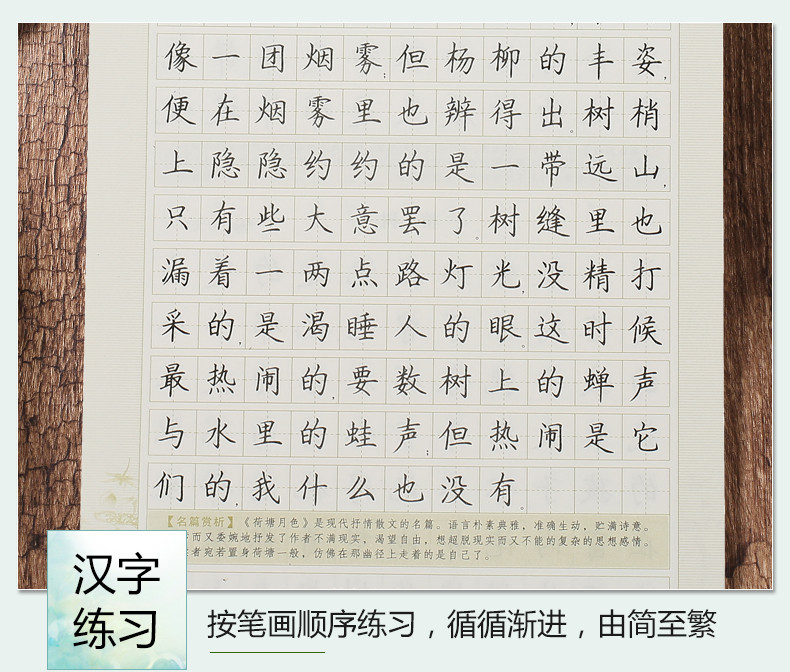 像一团烟雾;但杨柳的丰姿,
便在烟雾里也辨得出。树梢
上隐隐约约的是一带远山,
只有些大意罢了。树缝里也
漏着一两点路灯光,没精打
采的,是渴睡人的眼。这时候
最热闹的,要数树上的蝉声
与水里的蛙声;但热闹是它
们的,我什么也没有。
【名篇赏析】《荷塘月色》是现代抒情散文的名篇。语言朴素典雅,准确生动,贮满诗意。
而又委婉地抒发了作者不满现实,渴望自由,想超脱现实而又不能的复杂的思想感情。
者宛若置身荷塘一般,仿佛在那幽径上走着的是自己了。
汉字
练习
按笔画顺序练习,循循渐进,由简至繁